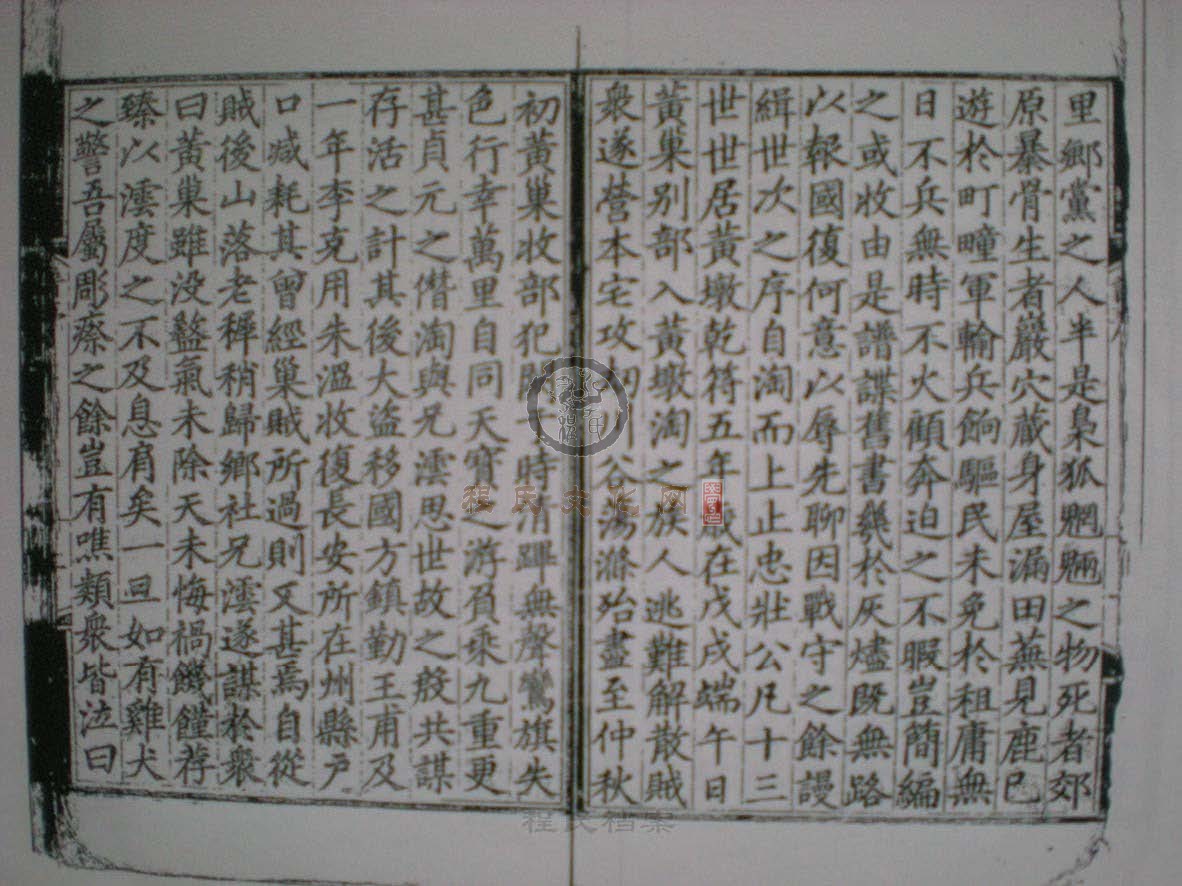 里鄉黨之人半是梟狐魍魎之物死者郊
原暴骨生者巖穴蔵身屋漏田蕪見鹿巳
遊於町疃軍輸兵餉驅民未免於租庸無
日不兵無時不火顛奔迫之不暇豈簡編
之或收由是譜諜舊書燬於灰燼既無路
以報國復何意以辱先聊因戰守之餘謾
緝世次之序自淘而上止忠壯公凡十三
世世居黃墩乾符五年歲在戊戌端午日
黃巢别部入黃墩淘之族人逃難解散賊
衆遂營本宅攻刼川谷蕩滌殆盡至仲秋
初黃巢收部犯闕時清蹕無聲鸞旗失
色行幸萬里自同天寶之游負乘九重更
甚貞元之僭淘與兄澐思世故之殷共謀
存活之計其後大盜移國方鎮勤王甫及
一年李克用朱溫收復長安所在州縣戶
口減耗其曾經巢賊所過則又甚焉自從
賊後山落老穉稍歸鄉社兄澐遂謀於衆
曰黃巢雖没盭氣未除天未悔禍饑饉荐
臻以澐度之不及息肩矣一旦如有雞犬
之警吾屬彫瘵之餘豈有噍類衆皆泣曰
程氏文化网
程氏档案